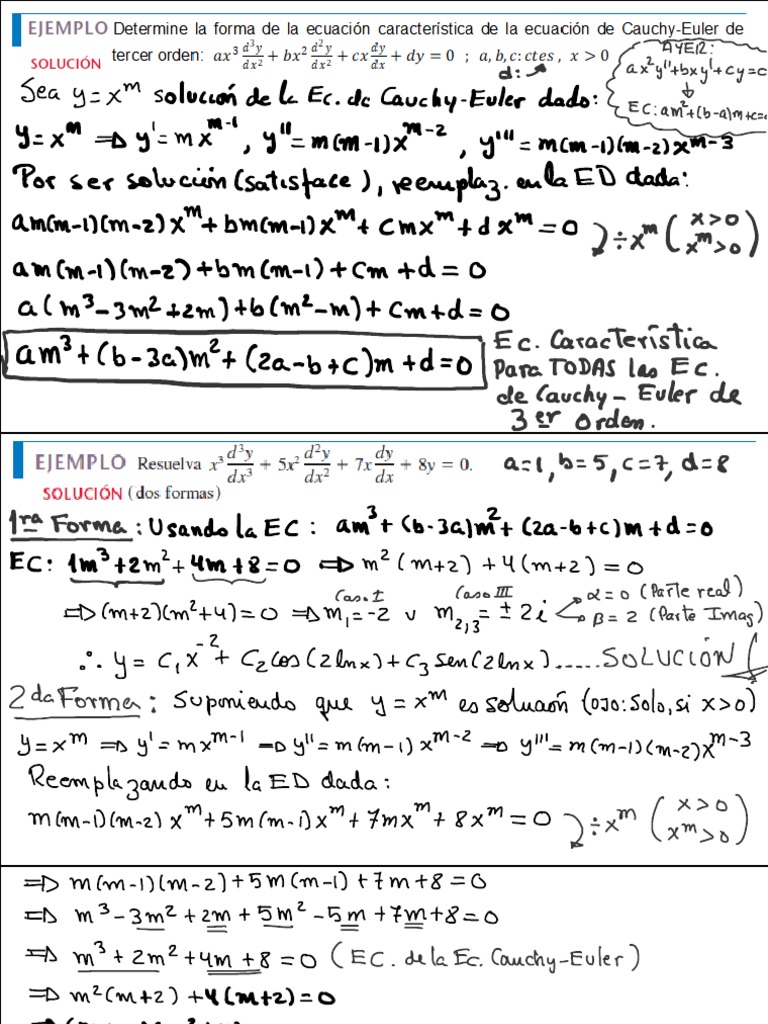 EJEMPLO Determine la forma de la ecuación característica de la ecuación de Cauchy-Euler de
tercer orden: ax³ d³y/dx² + bx² d²y/dx² + cx dy/dx + dy = 0 ; a, b, c: ctes , x > 0
d:
SOLUCIÓN
AYER:
ax²y''+bxy'+cy=c
↓
EC: am²+(b-a)m+c=
Sea y=x^m solución de la Ec. de Cauchy-Euler dado:
y=x^m ⇒ y'=mx^{m-1} , y''=m(m-1)x^{m-2} , y'''=m(m-1)(m-2)x^{m-3}
Por ser solución (satisface), reemplaz. en la ED dada:
am(m-1)(m-2)x^m+bm(m-1)x^m+cmx^m+dx^m=0 ÷x^m (x>0
x^m>0)
am(m-1)(m-2)+bm(m-1)+cm+d=0
a(m³-3m²+2m)+b(m²-m)+cm+d=0
am³+(b-3a)m²+(2a-b+c)m+d=0
Ec. Característica
para TODAS las Ec.
de Cauchy-Euler de
3er orden.
EJEMPLO Resuelva x³ d³y/dx³ + 5x² d²y/dx² + 7x dy/dx + 8y = 0. a=1, b=5, c=7, d=8
SOLUCIÓN (dos formas)
1ra Forma: Usando la EC: am³+(b-3a)m²+(2a-b+c)m+d=0
EC: 1m³+2m²+4m+8=0 ⇒ m²(m+2)+4(m+2)=0
⇒(m+2)(m²+4)=0 ⇒ Caso I m₁=-2 v Caso III m₂,₃=±2i α=0 (Parte real)
β=2 (Parte Imag)
∴ y = C₁x^{-2}+C₂cos(2lnx)+C₃sen(2lnx).....SOLUCIÓN
2da Forma: Suponiendo que y=x^m es solución (ojo: Solo, si x>0)
y=x^m ⇒ y'=mx^{m-1} ⇒ y''=m(m-1)x^{m-2} ⇒ y'''=m(m-1)(m-2)x^{m-3}
Reemplazando en la ED dada:
m(m-1)(m-2)x^m+5m(m-1)x^m+7mx^m+8x^m=0 ÷x^m (x>0
x^m>0)
⇒ m(m-1)(m-2)+5m(m-1)+7m+8=0
⇒ m³-3m²+2m+5m²-5m+7m+8=0
⇒ m³+2m²+4m+8=0 (EC. de la Ec. Cauchy-Euler)
⇒ m²(m+2)+4(m+2)=0